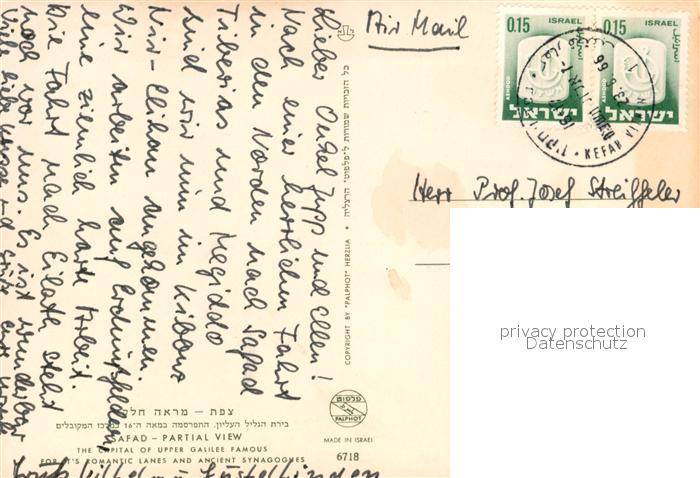 Air Mail
0.15 ISRAEL
ASHDOD
ישראל
0.15 ISRAEL
ASHDOD
ישראל
KEFAR
66
Herr Prof. Josef Streiffeler
privacy protection
Datenschutz
Lieber Onkel Jupp und Ellen!
Nach einer herrlichen Fahrt
in den Norden nach Safad
Tiberias und Megiddo
sind wir nun im Kibbuz
angekommen.
Wir arbeiten auf
eine ziemlich harte Arbeit.
Die Fahrt nach Eilath steht
noch vor uns. Es ist wunderbar
כל הזכויות שמורות ל"פלפוט" הרצליה
COPYRIGHT BY "PALPHOT" HERZLIA
פלפוט
PALPHOT
MADE IN ISRAEL
6718
צפת – מראה חלקי
בירת הגליל העליון, התפרסמה במאה ה־16 כמרכז המקובלים
SAFAD – PARTIAL VIEW
THE CAPITAL OF UPPER GALILEE FAMOUS
FOR IT'S ROMANTIC LANES AND ANCIENT SYNAGOGUES